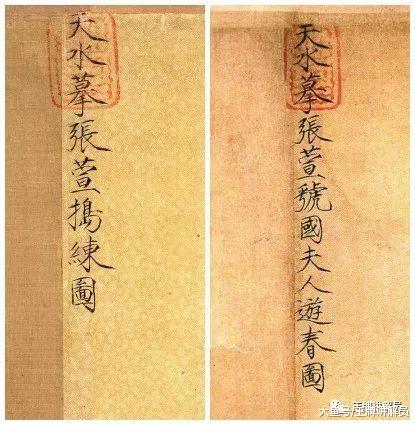 天水摹張萱搗練圖
天水摹張萱虢國夫人遊春圖